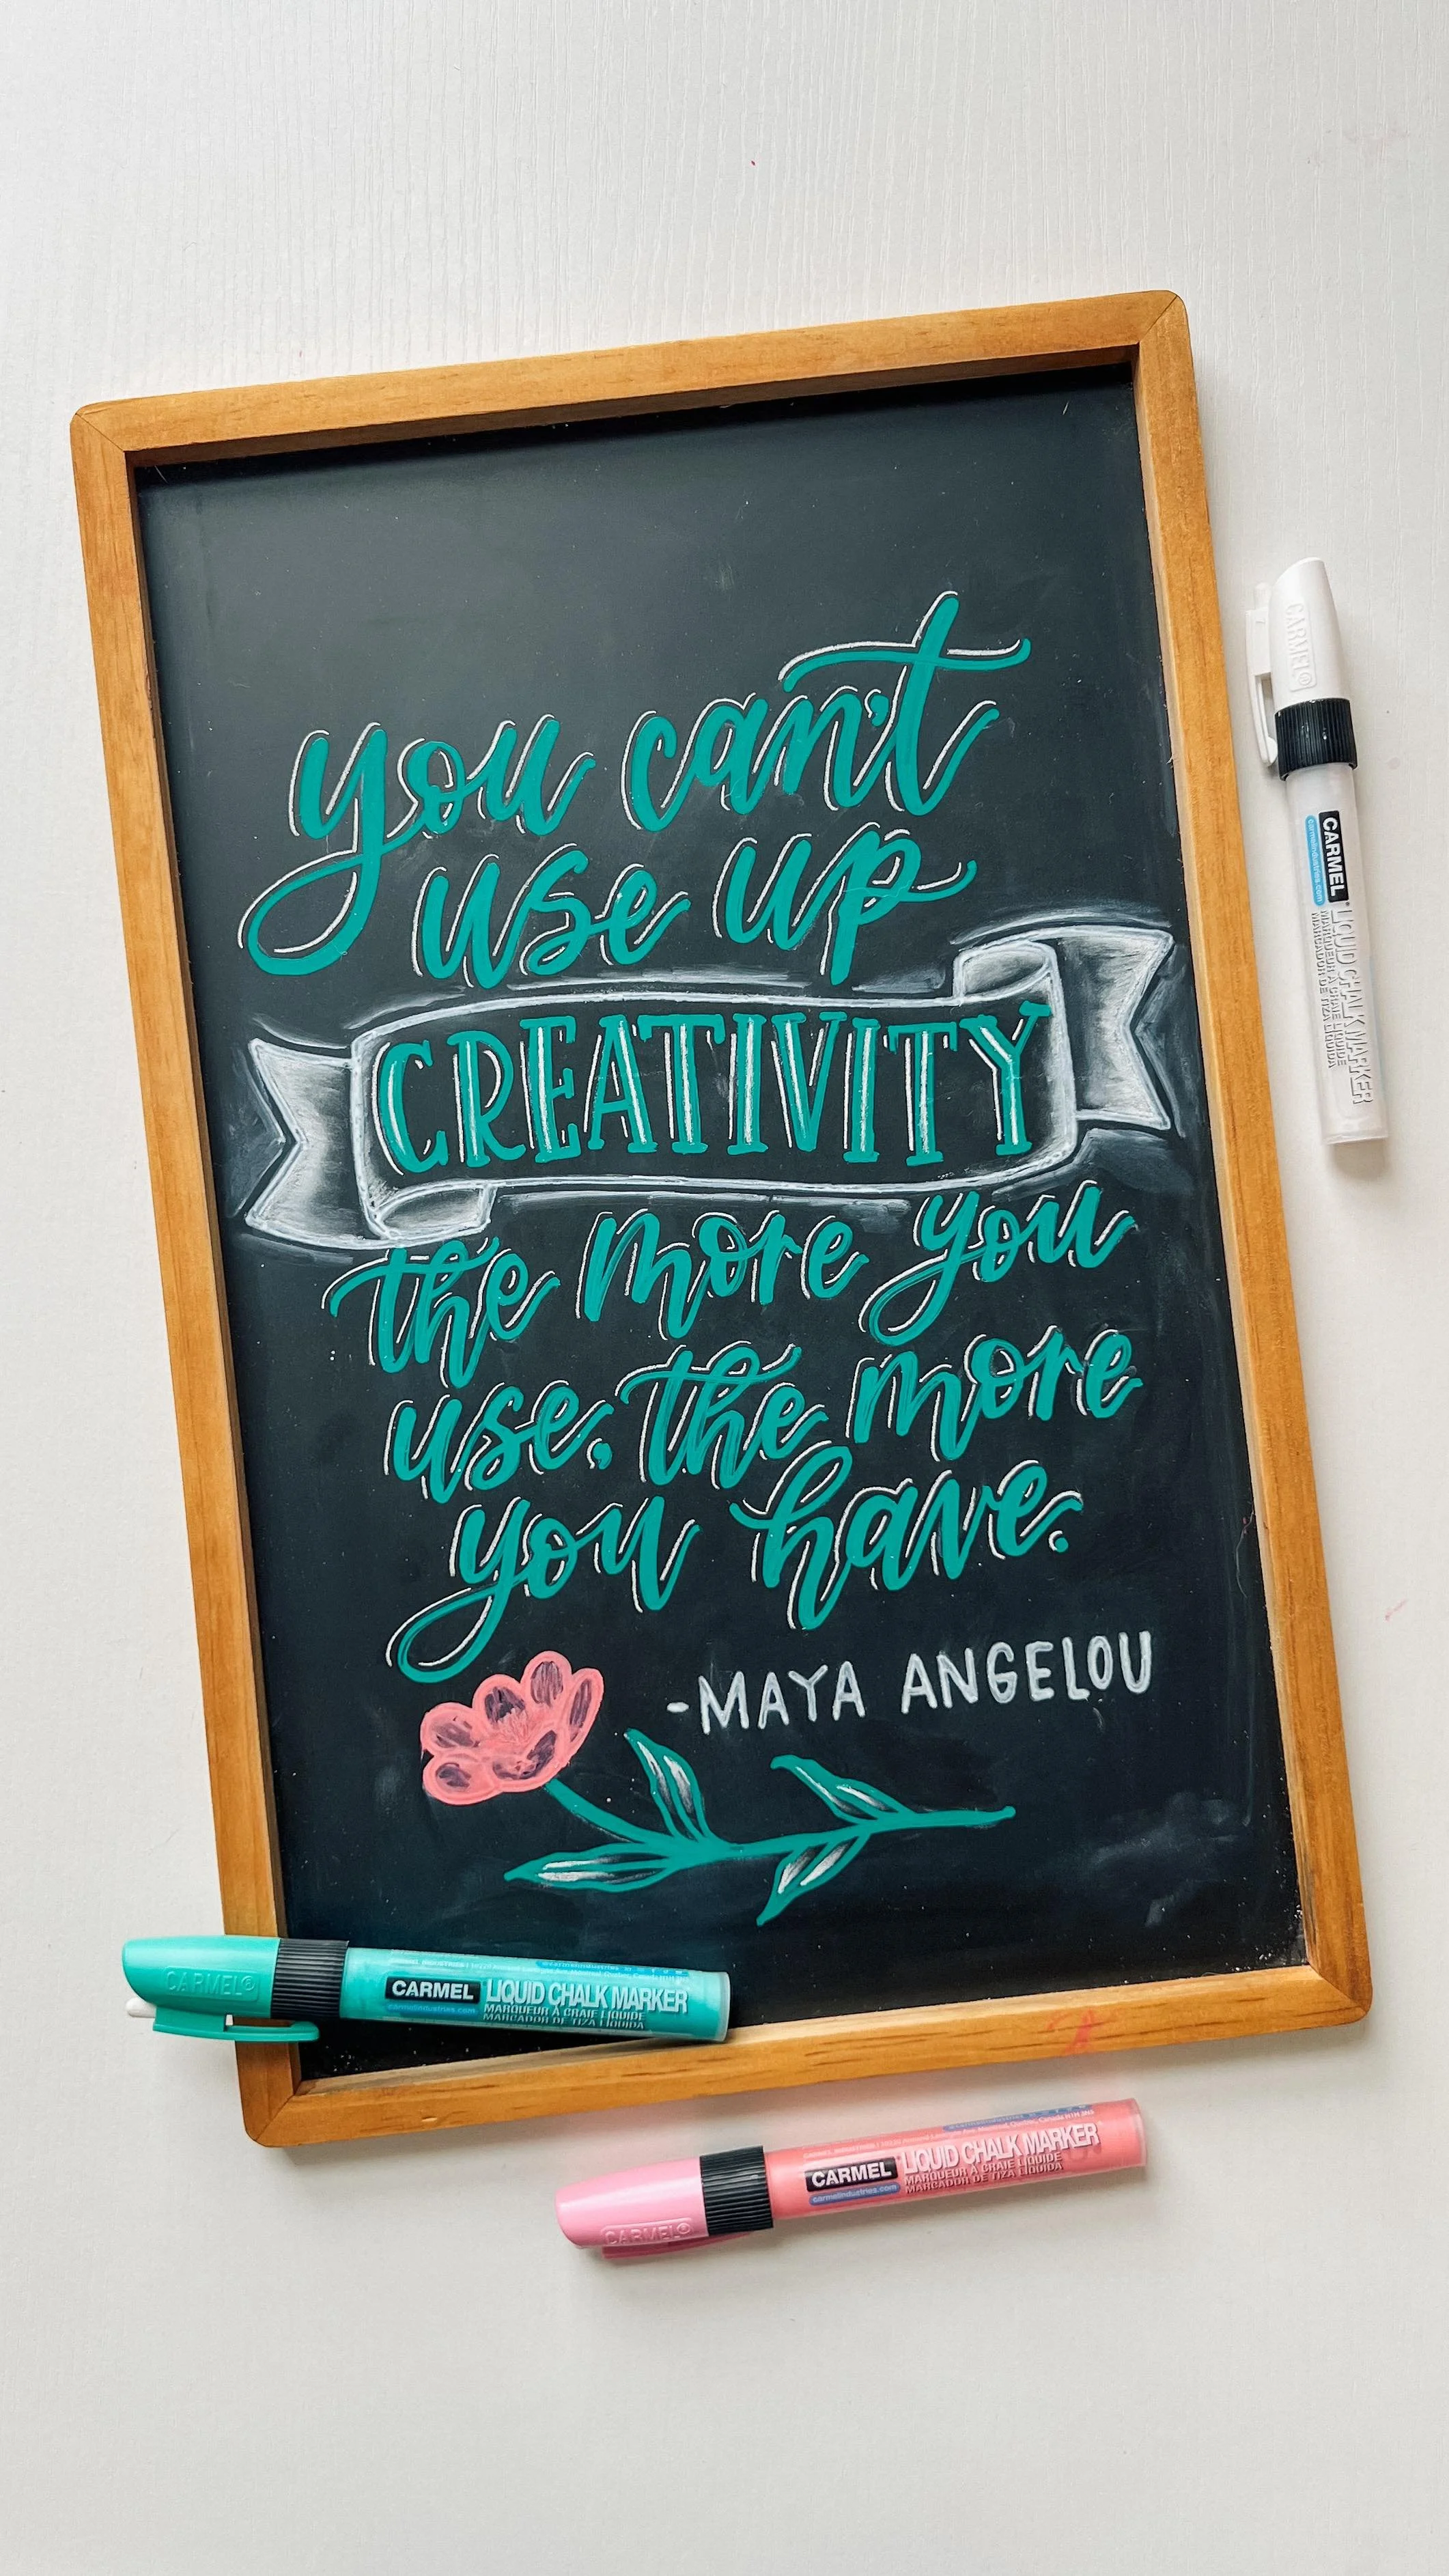 you can't
use up
CREATIVITY
the more you
use, the more
you have.
-MAYA ANGELOU
CARMEL®
CARMEL
carmelindustries.com
LIQUID CHALK MARKER
MARQUEUR À CRAIE LIQUIDE
MARCADOR DE TIZA LIQUIDA
CARMEL®
CARMEL
carmelindustries.com
LIQUID CHALK MARKER
MARQUEUR À CRAIE LIQUIDE
MARCADOR DE TIZA LIQUIDA
CARMEL®
CARMEL
carmelindustries.com
LIQUID CHALK MARKER
MARQUEUR À CRAIE LIQUIDE
MARCADOR DE TIZA LIQUIDA